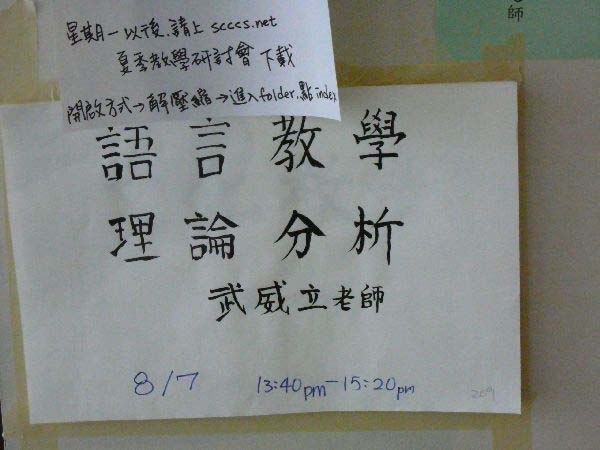 星期一以後,請上 scccs.net
夏季教學研討會 下載
開啟方式→解壓縮→進入folder,點index
語言教學
理論分析
武威立老師
8/7 13:40pm-15:20pm
209
老師